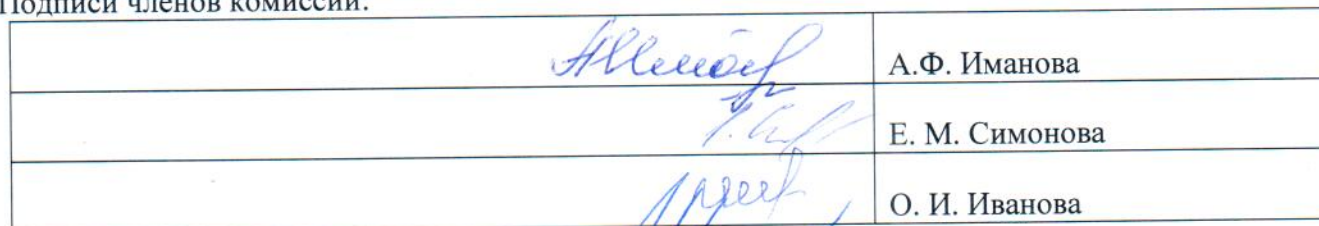 Подписи членов комиссии:
А.Ф. Иманова
Е. М. Симонова
О. И. Иванова